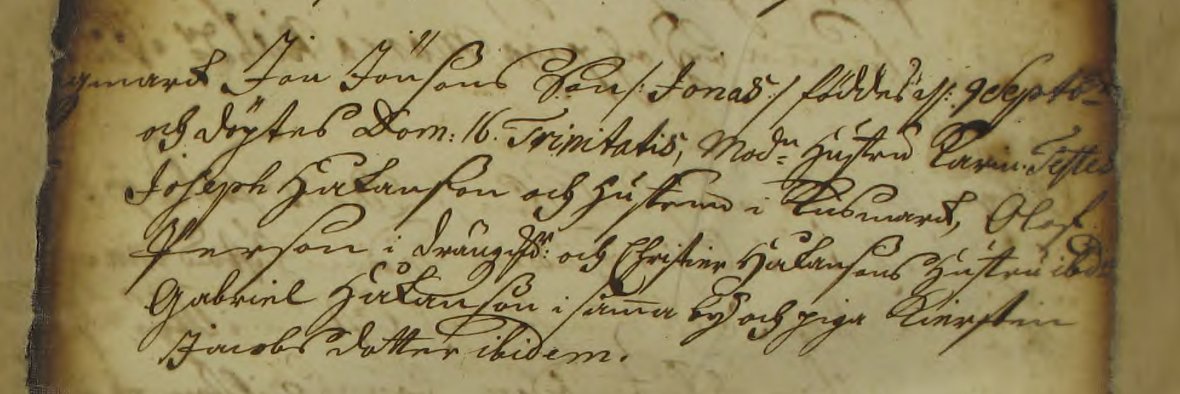 Jon Jönsons Son /: Jonas :/ föddes d. 9 Septb:
och döptes Dom: 16. Trinitatis, Modn= Hustru Karin. Testes
Joseph Håkanson och hustrun i Rusmark, Olof
Person i och Christier Håkansons Hustru ibid:
Gabriel Håkanson i samma by och piga Kiersten
Jacobs dotter ibidem.